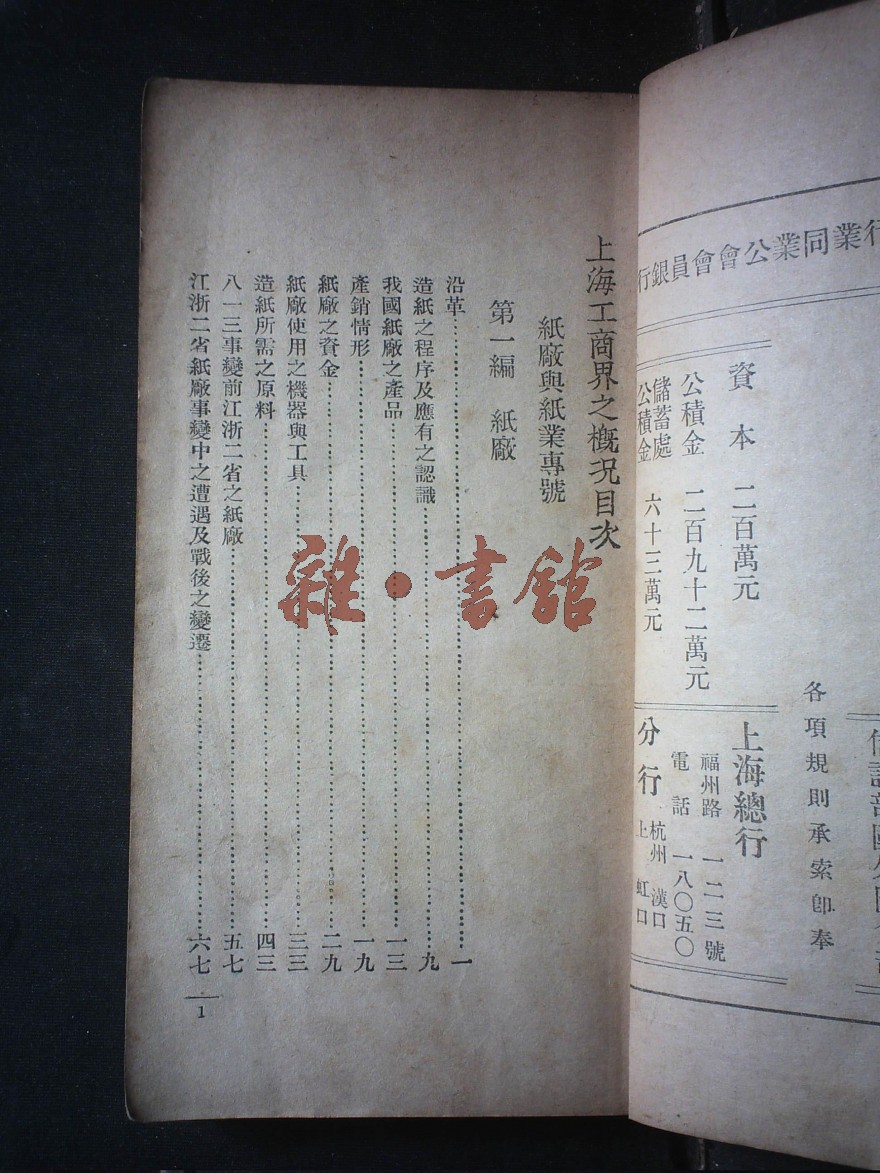 上海工商界之概況目次
紙廠與紙業專號
第一編 紙廠
沿革 一
造紙之程序及應有之認識 九
我國紙廠之產品 一三
產銷情形 一九
紙廠之資金 二九
紙廠使用之機器與工具 三三
造紙所需之原料 四三
八一三事變前江浙二省之紙廠 五七
江浙二省紙廠事變中之遭遇及戰後之變遷 六七
1
雜·書館
行業同業公會會員銀行
資本 二百萬元
公積金 二百九十二萬元
儲蓄處
公積金 六十三萬元
各項規則承索即奉
上海總行
福州路 一二三號
電話 一八〇五〇
分行
杭州 漢口
上 虹口